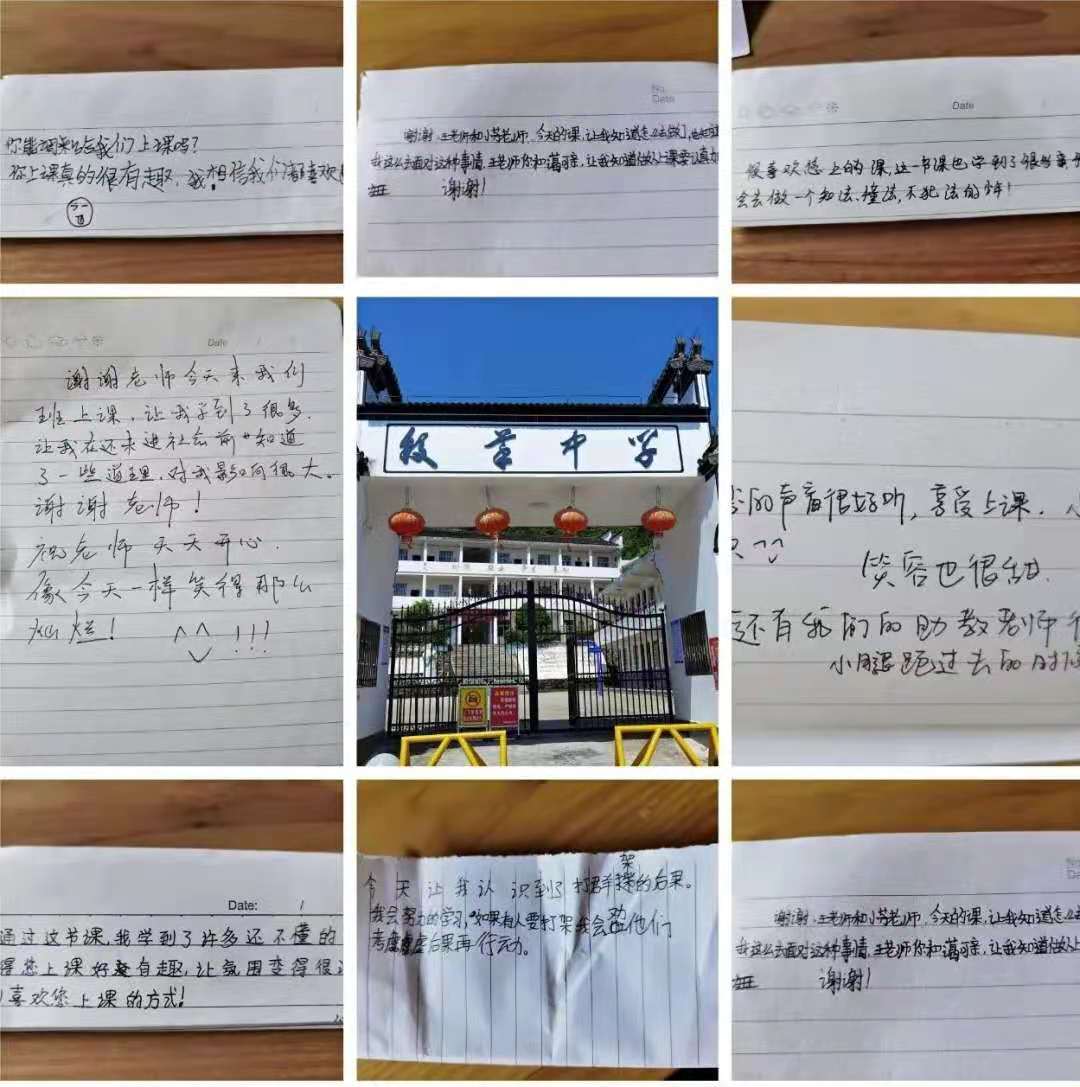 你能
我们上课吗?
你上课真的很有趣,我相信我们
喜欢
No.
Date
谢谢王老师和小
老师,今天的课,让我知道怎么去做
我
去面对这种事情,王老师你和蔼可亲,让我知道
上课要认真
谢谢!
Date
很喜欢您上的课,这一节课也学到了很多
会去做一个知法、懂法,不犯法的少年!
Date
谢谢老师今天来我们
班上课,让我学到了很多,
让我在还未进社会前也知道
了一些道理,对我影响很大。
谢谢老师!
祝老师天天开心
像今天一样笑得那么
灿烂! ^^ !!!
段莘中学
的声音很好听,享受上课.
笑容也很甜.
还有我们的助教老师
小腿跑过去的时
Date: /
通过这节课,我学到了许多还不懂的
得您上课好有趣,让氛围变得很
喜欢您上课的方式!
架
今天让我认识到了打群
的后果。
我会努力的学习,如果有人要打架我会劝他们
考虑
后果再行动。
No
Date
谢谢王老师和小
老师,今天的课,让我知道怎么
我
去面对这种事情,王老师你和蔼可亲,让我知道
上
谢谢!